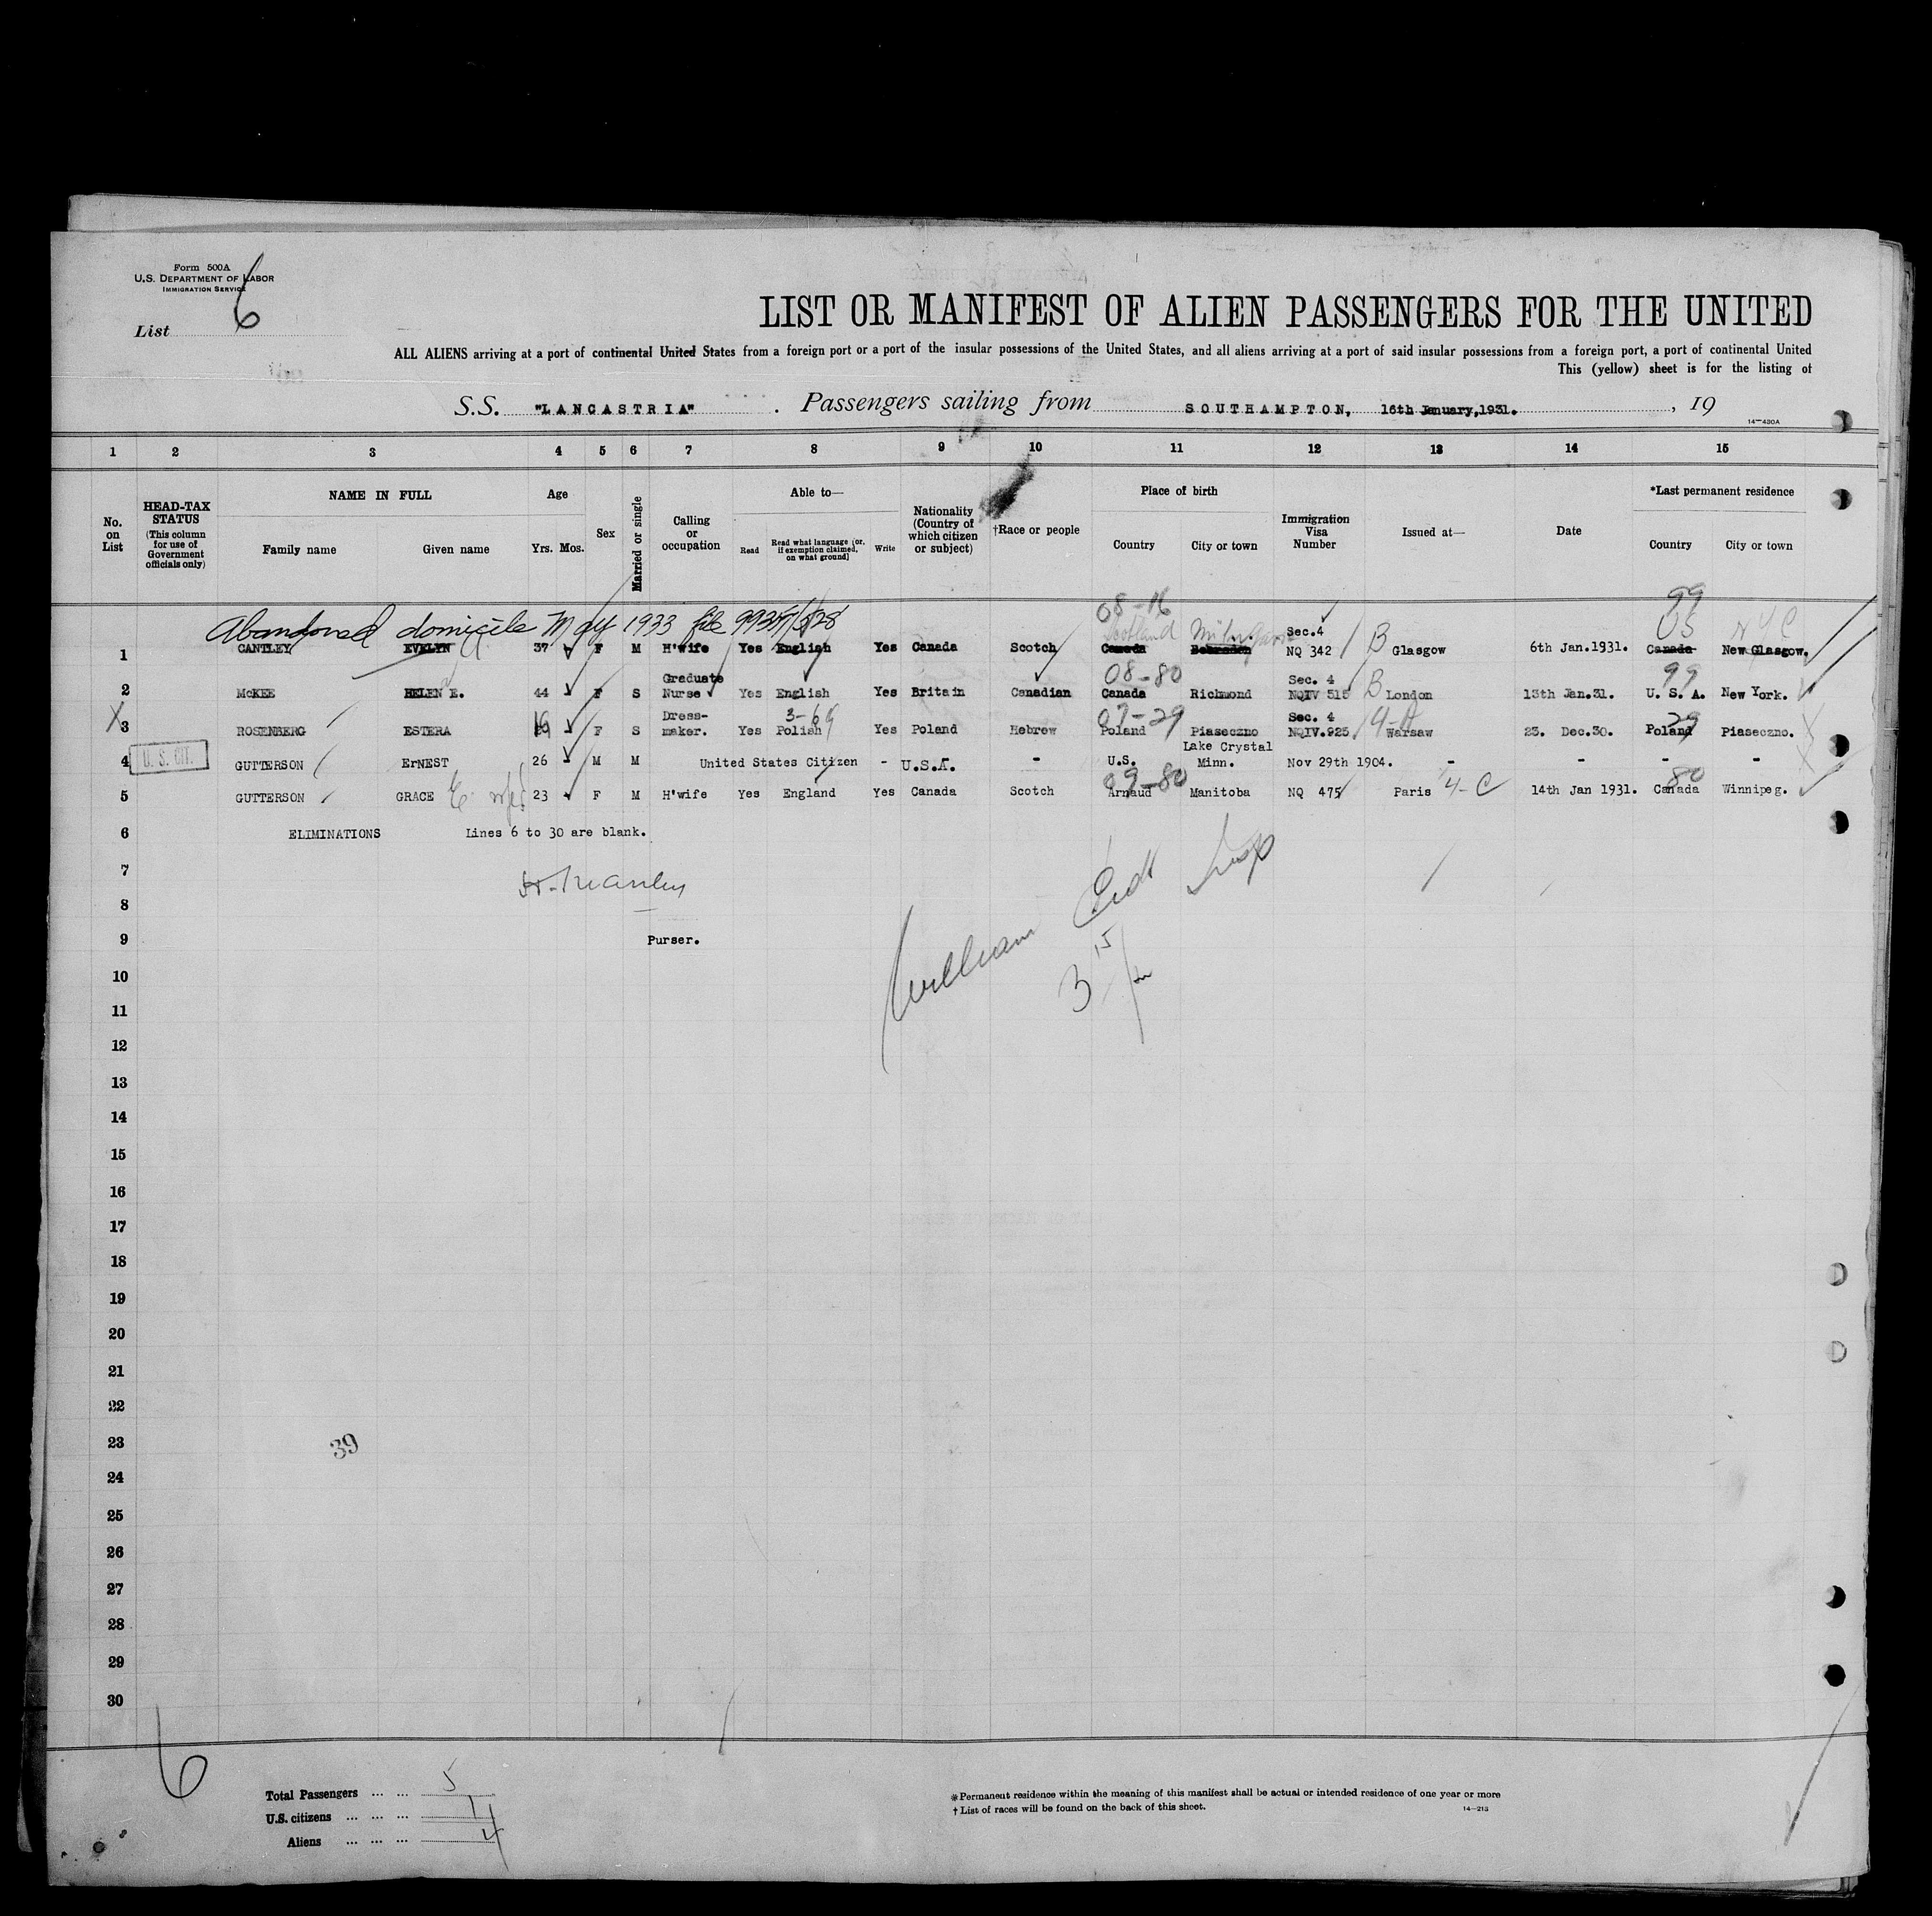 Form 500A
U.S. DEPARTMENT OF LABOR
IMMIGRATION SERVICE
List 6
LIST OR MANIFEST OF ALIEN PASSENGERS FOR THE UNITED
ALL ALIENS arriving at a port of continental United States from a foreign port or a port of the insular possessions of the United States, and all aliens arriving at a port of said insular possessions from a foreign port, a port of continental United
This (yellow) sheet is for the listing of
S.S. "LANCASTRIA" . Passengers sailing from SOUTHAMPTON, 16th January,1931. , 19
14—430A
1 2 3 4 5 6 7 8 9 10 11 12 13 14 15
No. on List
HEAD-TAX STATUS (This column for use of Government officials only)
NAME IN FULL
Family name Given name
Age
Yrs. Mos.
Sex
Married or single
Calling or occupation
Able to—
Read Read what language [or, if exemption claimed, on what ground] Write
Nationality (Country of which citizen or subject)
†Race or people
Place of birth
Country City or town
Immigration Visa Number
Issued at—
Date
*Last permanent residence
Country City or town
Abandoned domicile May 1933 file 08-16 99
Scotland Sec.4 05 N Y C
1 CANTLEY EVELYN 37 F M H'wife Yes English Yes Canada Scotch Canada NQ 342 B Glasgow 6th Jan.1931. Canada New Glasgow.
Graduate 08-80 Sec. 4 99
2 McKEE HELEN E. 44 F S Nurse Yes English Yes Britain Canadian Canada Richmond NQIV 515 B London 13th Jan.31. U. S. A. New York.
X Dress- 3-64 07-29 Sec. 4 4-A 29
3 ROSENBERG ESTERA F S maker. Yes Polish Yes Poland Hebrew Poland Piaseczno NQIV.925 Warsaw 23. Dec.30. Poland Piaseczno.
Lake Crystal
U. S. CIT.
4 GUTTERSON ErNEST 26 M M United States Citizen - U.S.A. - U.S. Minn. Nov 29th 1904. - - - -
09-80 80
5 GUTTERSON GRACE E. wife 23 F M H'wife Yes England Yes Canada Scotch Arnaud Manitoba NQ 475 Paris 4-C 14th Jan 1931. Canada Winnipeg.
6 ELIMINATIONS Lines 6 to 30 are blank.
7
8
9 Purser.
William Insp
10
11
12
13
14
15
16
17
18
19
20
21
22
23
39
24
25
26
27
28
29
30
6
Total Passengers ... ... 5
U.S. citizens ... ... ... 1
Aliens ... ... ... 4
* Permanent residence within the meaning of this manifest shall be actual or intended residence of one year or more
† List of races will be found on the back of this sheet. 14—213